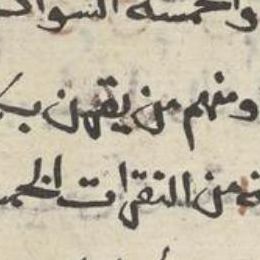 والخمسة السوا
ومنهم من يقهن بـ
من النقرات الخمـ